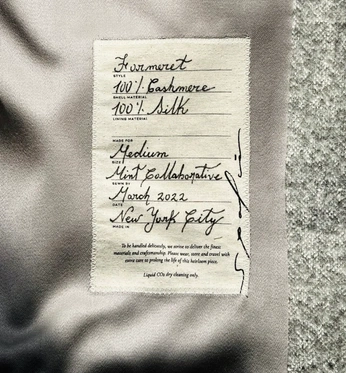 Farmeret
STYLE
100% Cashmere
SHELL MATERIAL
100% Silk
LINING MATERIAL
MADE FOR
Medium
SIZE
Mint Collaborative
SEWN BY
March 2022
DATE
New York City
MADE IN
To be handled delicately, we strive to deliver the finest
materials and craftsmanship. Please wear, store and travel with
extra care to prolong the life of this heirloom piece.
Liquid CO2 dry cleaning only.